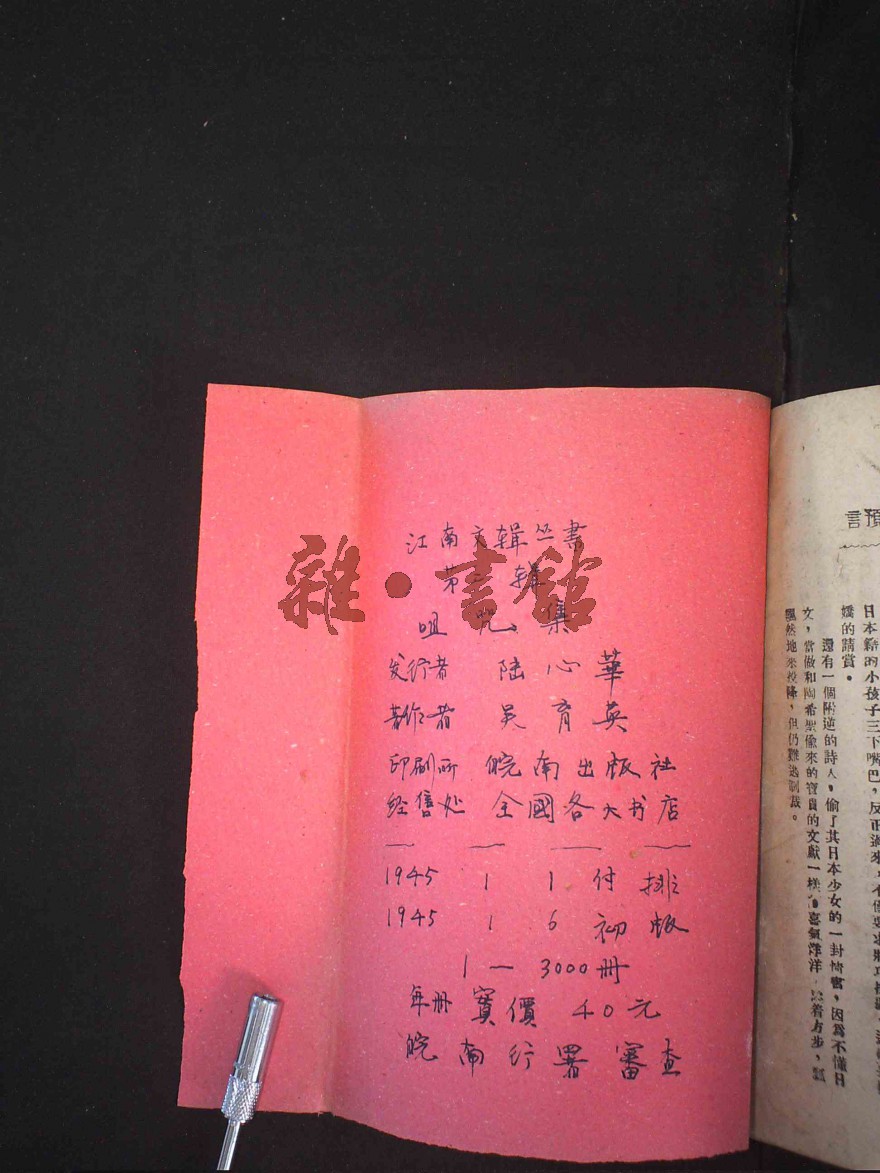 江南文辑丛書
第二辑
咀咒集
发行者 陆心華
著作者 吴育英
印刷所 皖南出版社
经售处 全國各大书店
1945 1 1 付排
1945 1 6 初版
1—3000册
年册 實價 40元
皖南行署審查
雜·書館
預言
日本爺的小孩子三下嘴巴,反正過來,不僅要求將功
嬌的請賞。
還有一個附逆的詩人,偷了其日本少女的一封情書,因爲不懂日
文,當做和陶希聖偷來的寶貴的文獻一樣,喜氣洋洋,踱着方步,飄
飄然地來投降,但仍難逃制裁。